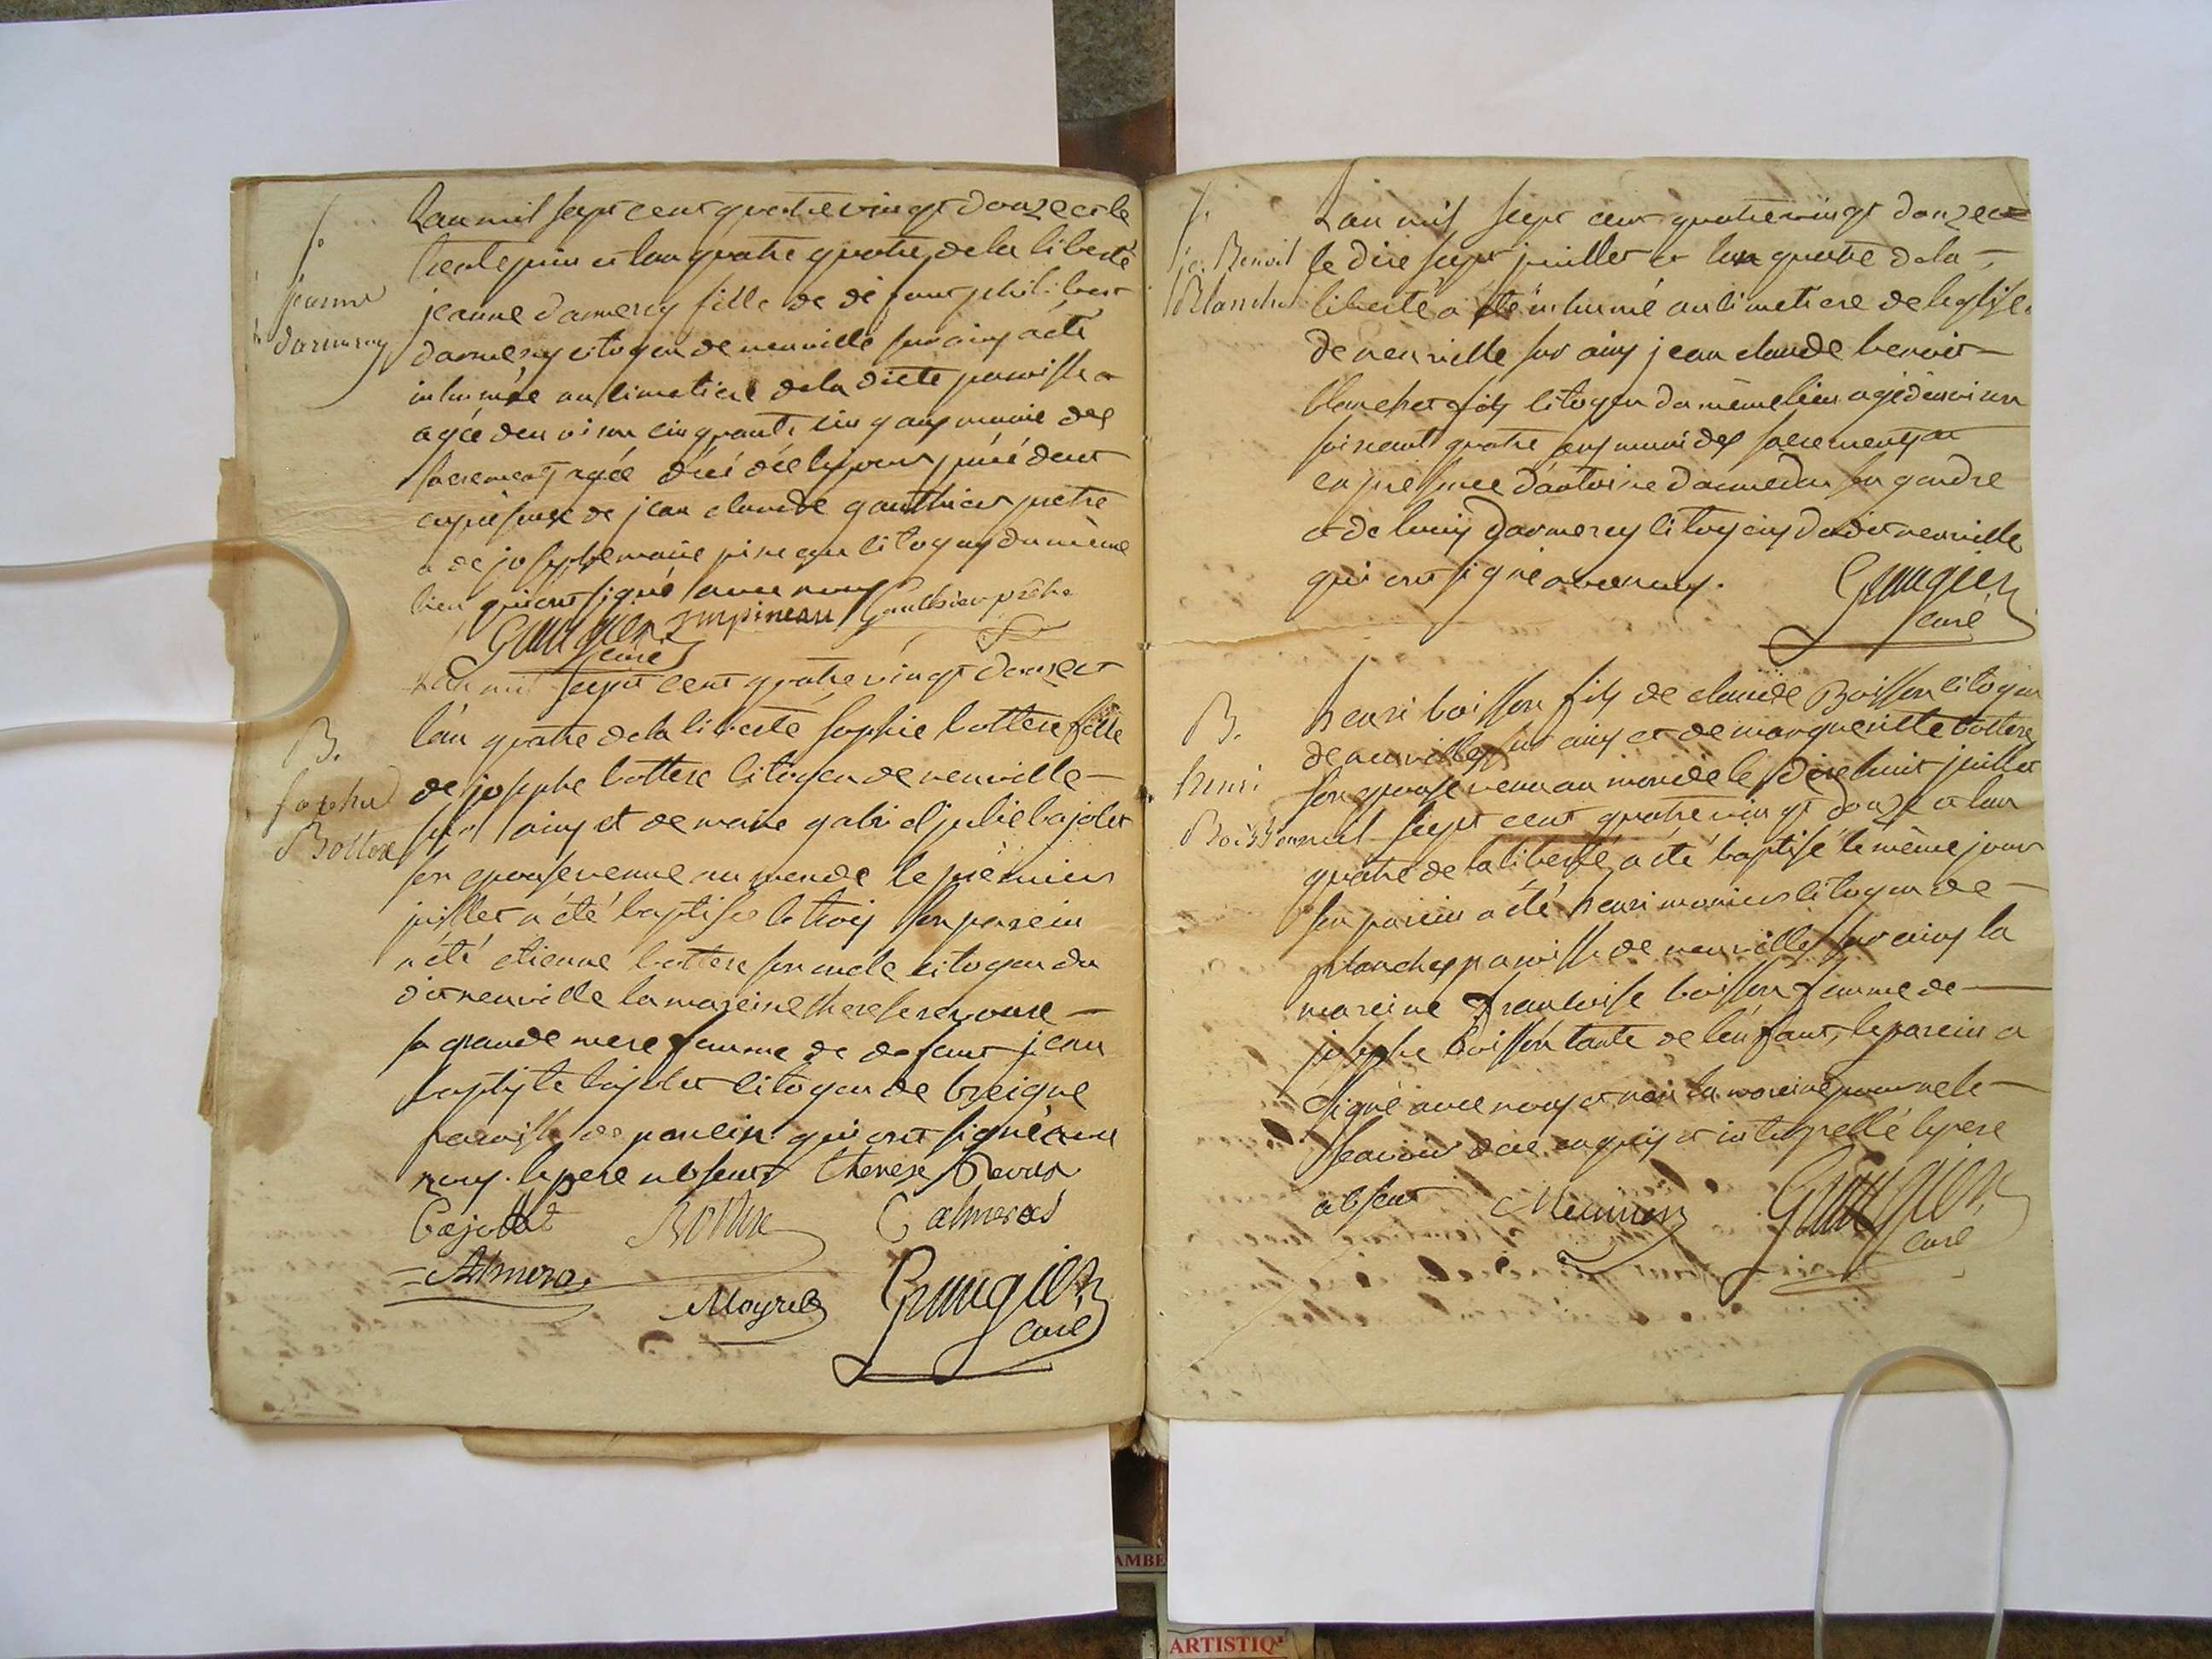 S.
jeanne
darmerey
L'an mil sept cent quatre vingt douze et le
trente juin et l'an quatre quatre de la liberté
jeanne darmerey fille de defunt philibert
darmerey citoyen de neuville sur ainy a été
inhumée au simetiere de la diête paroisse
agée denviron cinquante cinq ans munie des
sacrement agée décédée le jour précédent
en présence de jean claude gauthier pretre
a de josephe marie pineau citoyens du même
lieu qui ont signé avec nous
Graugier curé jmpineau Gauthier prêtre
L'an mil sept cent quatre vingt douze et
B.
Sophie
Bottex
l'an quatre de la liberté sophie bottex fille
de josephe bottex citoyen de neuville
sur ainy et de marie gabriel julie bajolet
son epouse venue au monde le prèmier
juillet a été baptisée le trois son parein
a été etienne bottex son oncle citoyen du
dit neuville la mareine therese revoux
sa grande mere femme de defunt jean
baptiste bajolet citoyen de
paroisse de poncin qui ont signé avec
nous. le pere absent therese Revoux
Bajollet Bottex C almeras
Almeras
Mayret Graugier
curé
S.
j.c. Benoit
Blanchet
L'an mil sept cent quatre vingt douze et
le dixe sept juillet et l'an quatre de la
liberté a été inhumé au simetiere de leglise
de neuville sur ainy jean claude benoit
blanchet fils citoyen du même lieu agé denviron
soixante quatre ans muni des sacrements et
en présence d'antoine son gendre
et de louis darmerey citoyens du dit neuville
qui ont signé avec nous.
Graugier
curé
B.
henri
Boisson
henri boisson fils de claude Boisson citoyen
de neuville sur ainy et de marguerite bottex
son epouse venu au monde le dixe huit juillet
mil sept cent quatre vingt douze et l'an
quatre de la liberté a été baptisé le même jour
son parein a été henri citoyen de
planches paroisse de neuville sur ainy la
mareine francoise boisson femme de
josephe boisson tante de l'enfant, le parein a
signé avec nous et non la mareine pour ne le
scavoir de ce enquis et interpellé le pere
absent Meunier Graugier
curé
AMBE
ARTISTIQ